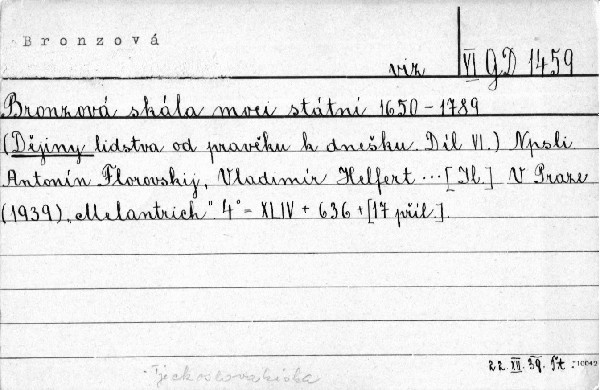 Bronzová
viz VI GD 1459
Bronzová skála moci státní 1650-1789
(Dějiny lidstva od pravěku k dnešku. Díl VI.) Npsli
Antonín Florovskij, Vladimír Helfert ... [Il.] V Praze
(1939) „Melantrich" 4° = XLIV + 636 + [17 příl.].
22. XII. 39. Št. 10042